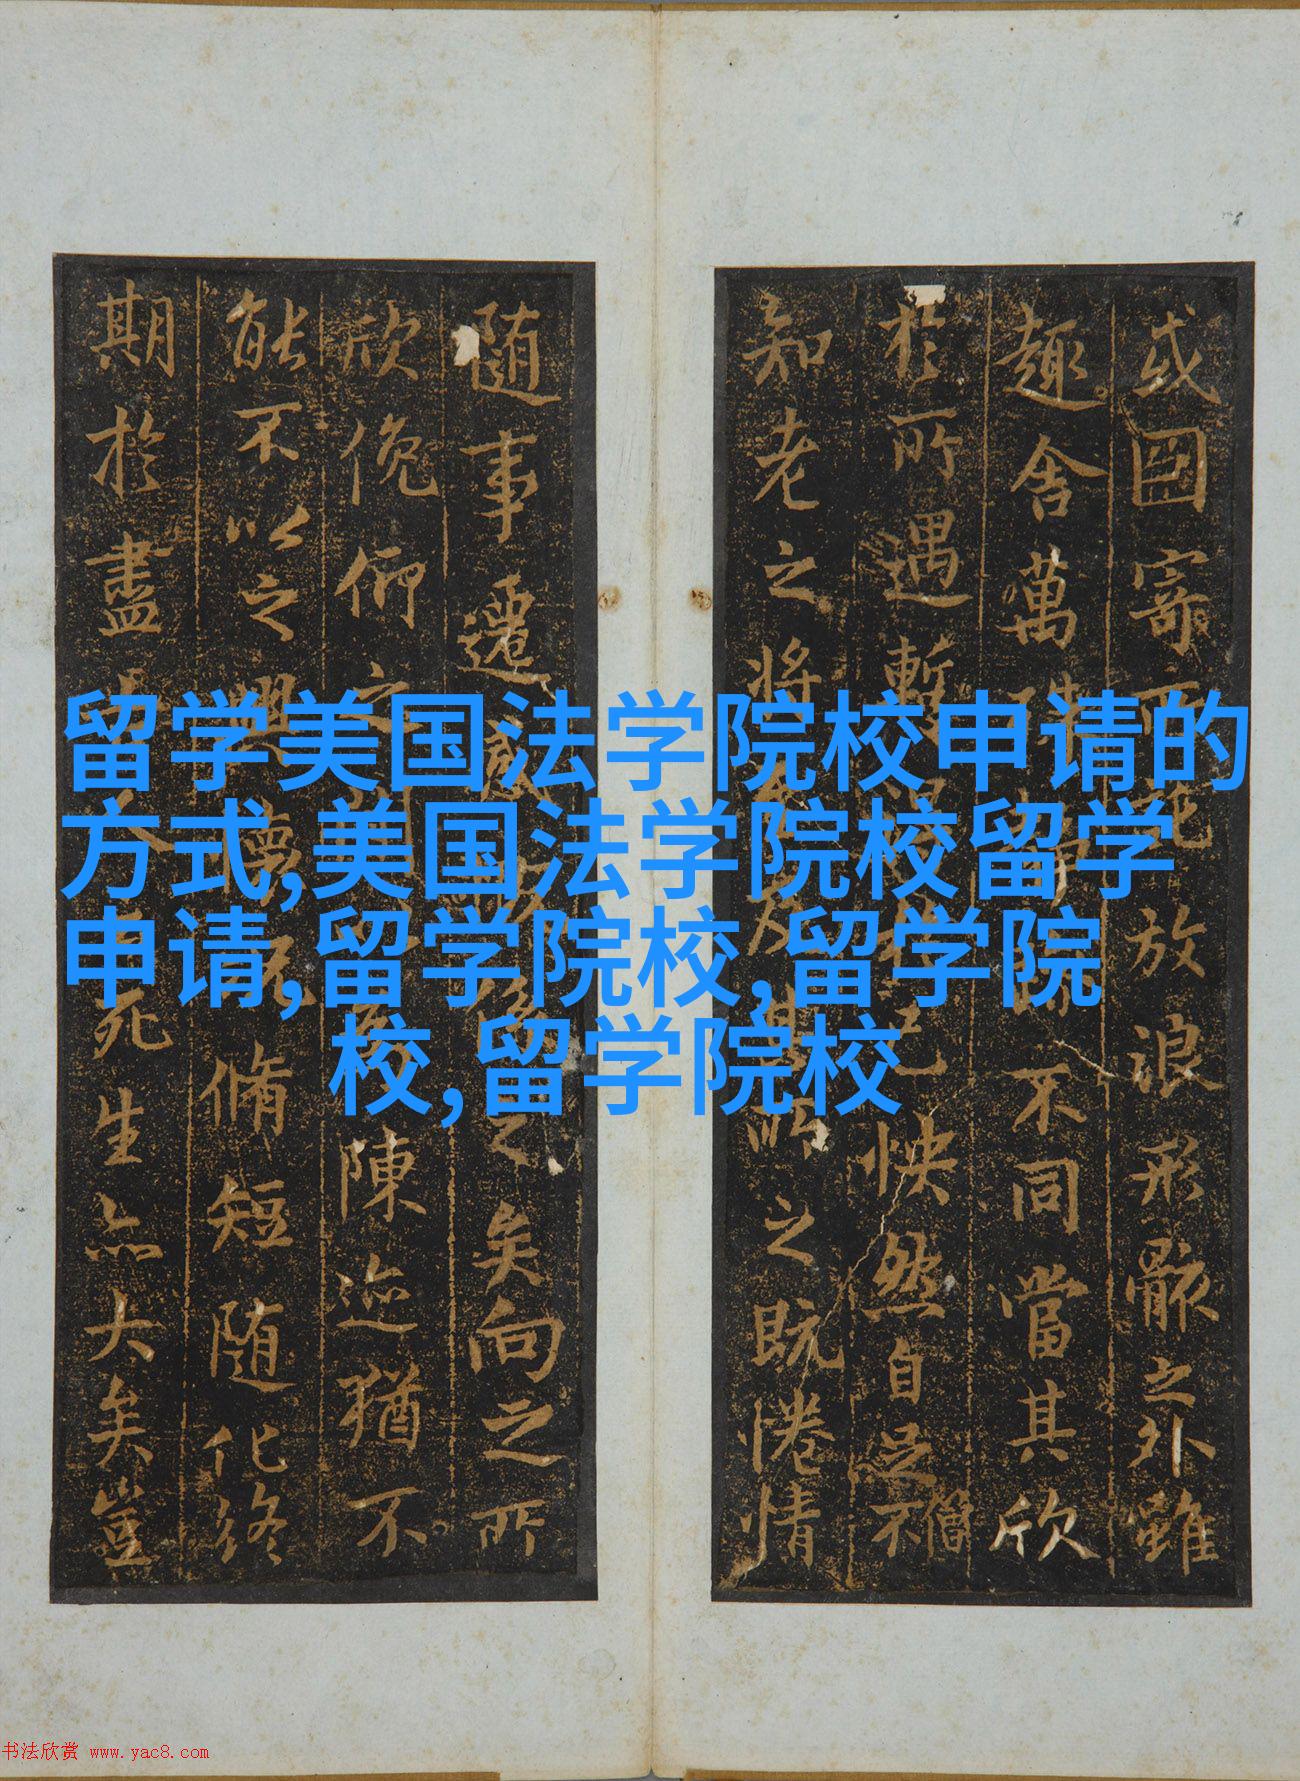 留学美国法学院校申请的
方式,美国法学院校留学
申请,留学院校,留学院
校,留学院校
或因寄放浪形骸之外雖
趣舍萬殊不同當其欣
於所遇暫己怏然自足不僧
知老之將其所之既惓情
隨事遷感之矣向之所
欣俛仰之陳迹猶不
能不以之興懷況脩短隨化終
期於盡死生亦大矣豈
书法欣赏 www.yac8.com